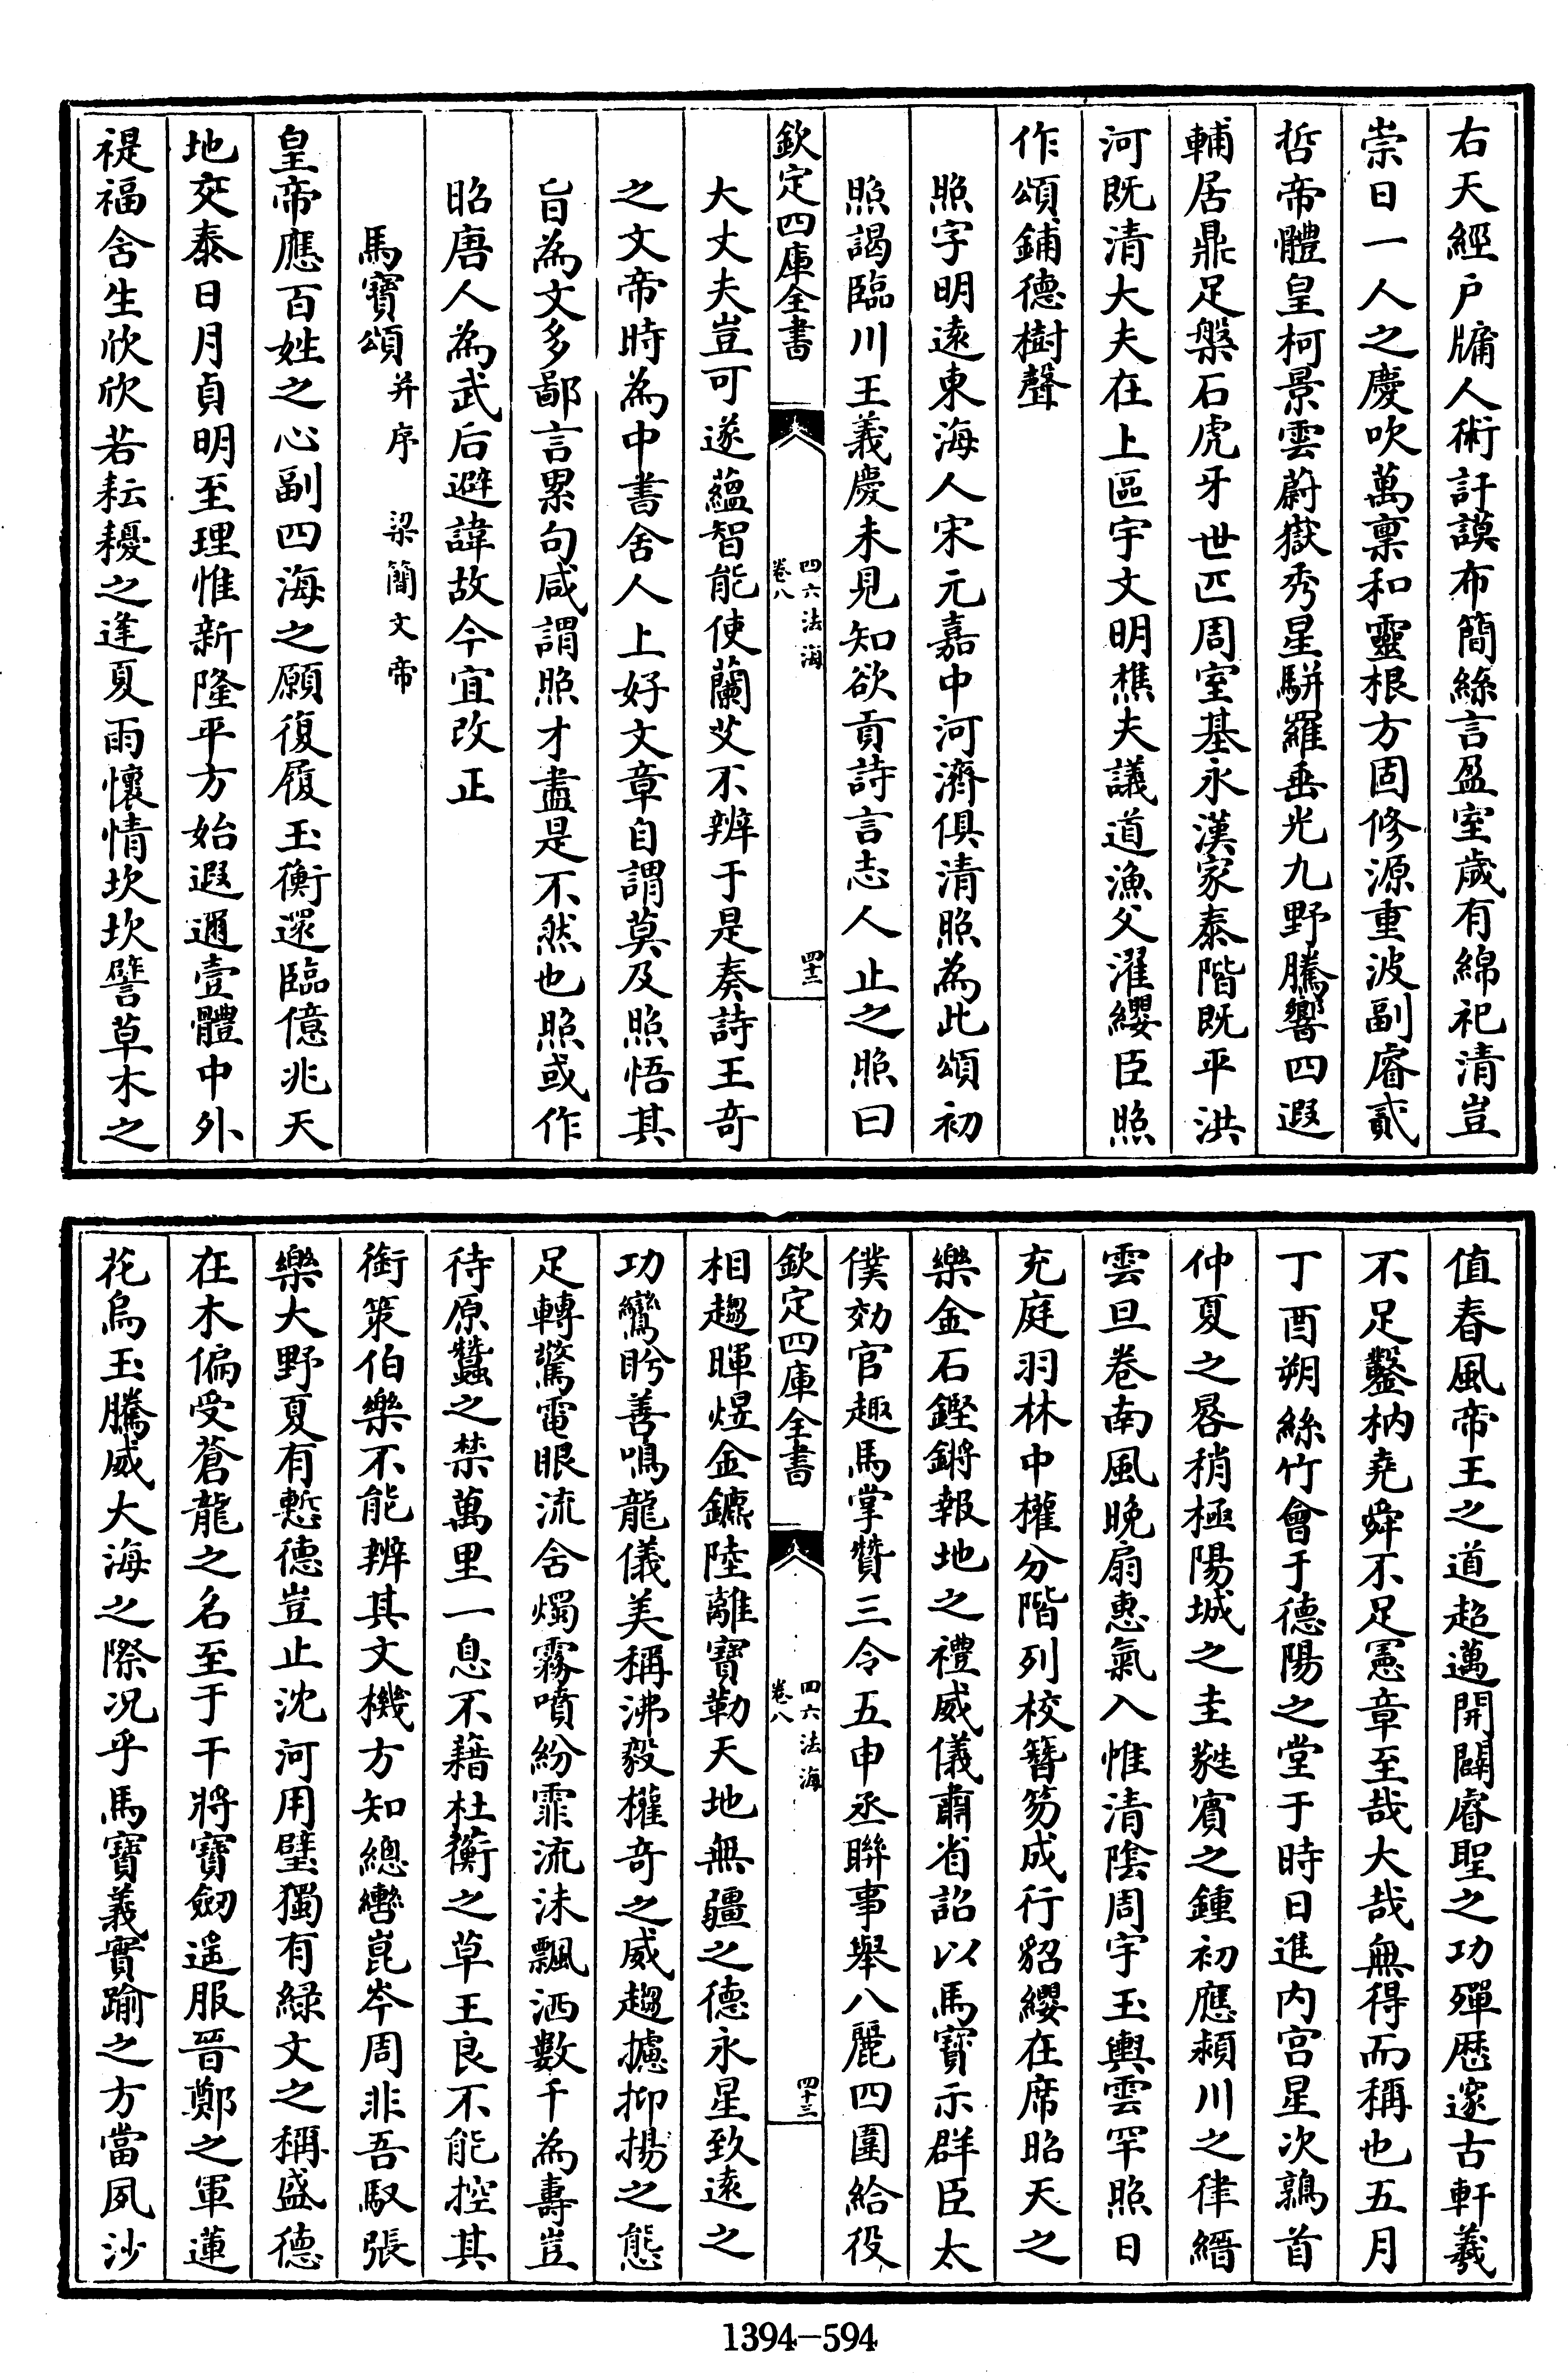 右天經戶牖人術訏謨布簡絲言盈室歲有綿祀清豈
崇日一人之慶吹萬稟和靈根方固修源重波副睿貳
哲帝體皇柯景雲蔚嶽秀星駢羅垂光九野騰響四遐
輔居鼎足盤石虎牙世匹周室基永漢家泰階既平洪
河既清大夫在上區宇文明樵夫議道漁父濯纓臣照
作頌鋪德樹聲
照字明遠東海人宋元嘉中河濟俱清照為此頌初
照謁臨川王義慶未見知欲貢詩言志人止之照曰
欽定四庫全書
四六法海
卷八
四十二
大丈夫豈可遂蘊智能使蘭艾不辨于是奏詩王奇
之文帝時為中書舍人上好文章自謂莫及照悟其
旨為文多鄙言累句咸謂照才盡是不然也照或作
昭唐人為武后避諱故今宜改正
馬寶頌并序 梁簡文帝
皇帝應百姓之心副四海之願復履玉衡還臨億兆天
地交泰日月貞明至理惟新隆平方始遐邇壹體中外
禔福含生欣欣若耘耰之逢夏雨懷情坎坎譬草木之
值春風帝王之道超邁開闢睿聖之功殫歷邃古軒羲
不足鑿枘堯舜不足憲章至哉大哉無得而稱也五月
丁酉朔絲竹會于德陽之堂于時日進内宫星次鶉首
仲夏之晷稍極陽城之圭蕤賓之鍾初應潁川之律縉
雲旦卷南風晚扇惠氣入惟清陰周宇玉輿雲罕照日
充庭羽林中權分階列校簪笏成行貂纓在席昭天之
樂金石鏗鏘報地之禮威儀肅省詔以馬寶示群臣太
僕効官趣馬掌贊三令五申丞聯事舉八麗四圉給役
欽定四庫全書
四六法海
卷八
四十三
相趨暉煜金鑣陸離寶勒天地無疆之德永星致遠之
功鸞盻善鳴龍儀美稱沸毅權奇之威趨攄抑揚之態
足轉驚電眼流含燭霧噴紛霏流沫飄洒數千為壽豈
待原蠶之禁萬里一息不藉杜蘅之草王良不能控其
銜策伯樂不能辨其文機方知總轡崑岑周非吾馭張
樂大野夏有慙德豈止沈河用璧獨有緑文之稱盛德
在木偏受蒼龍之名至于干將寶劒遥服晉鄭之軍蓮
花烏玉騰威大海之際况乎馬寶義實踰之方當夙沙
1394-594